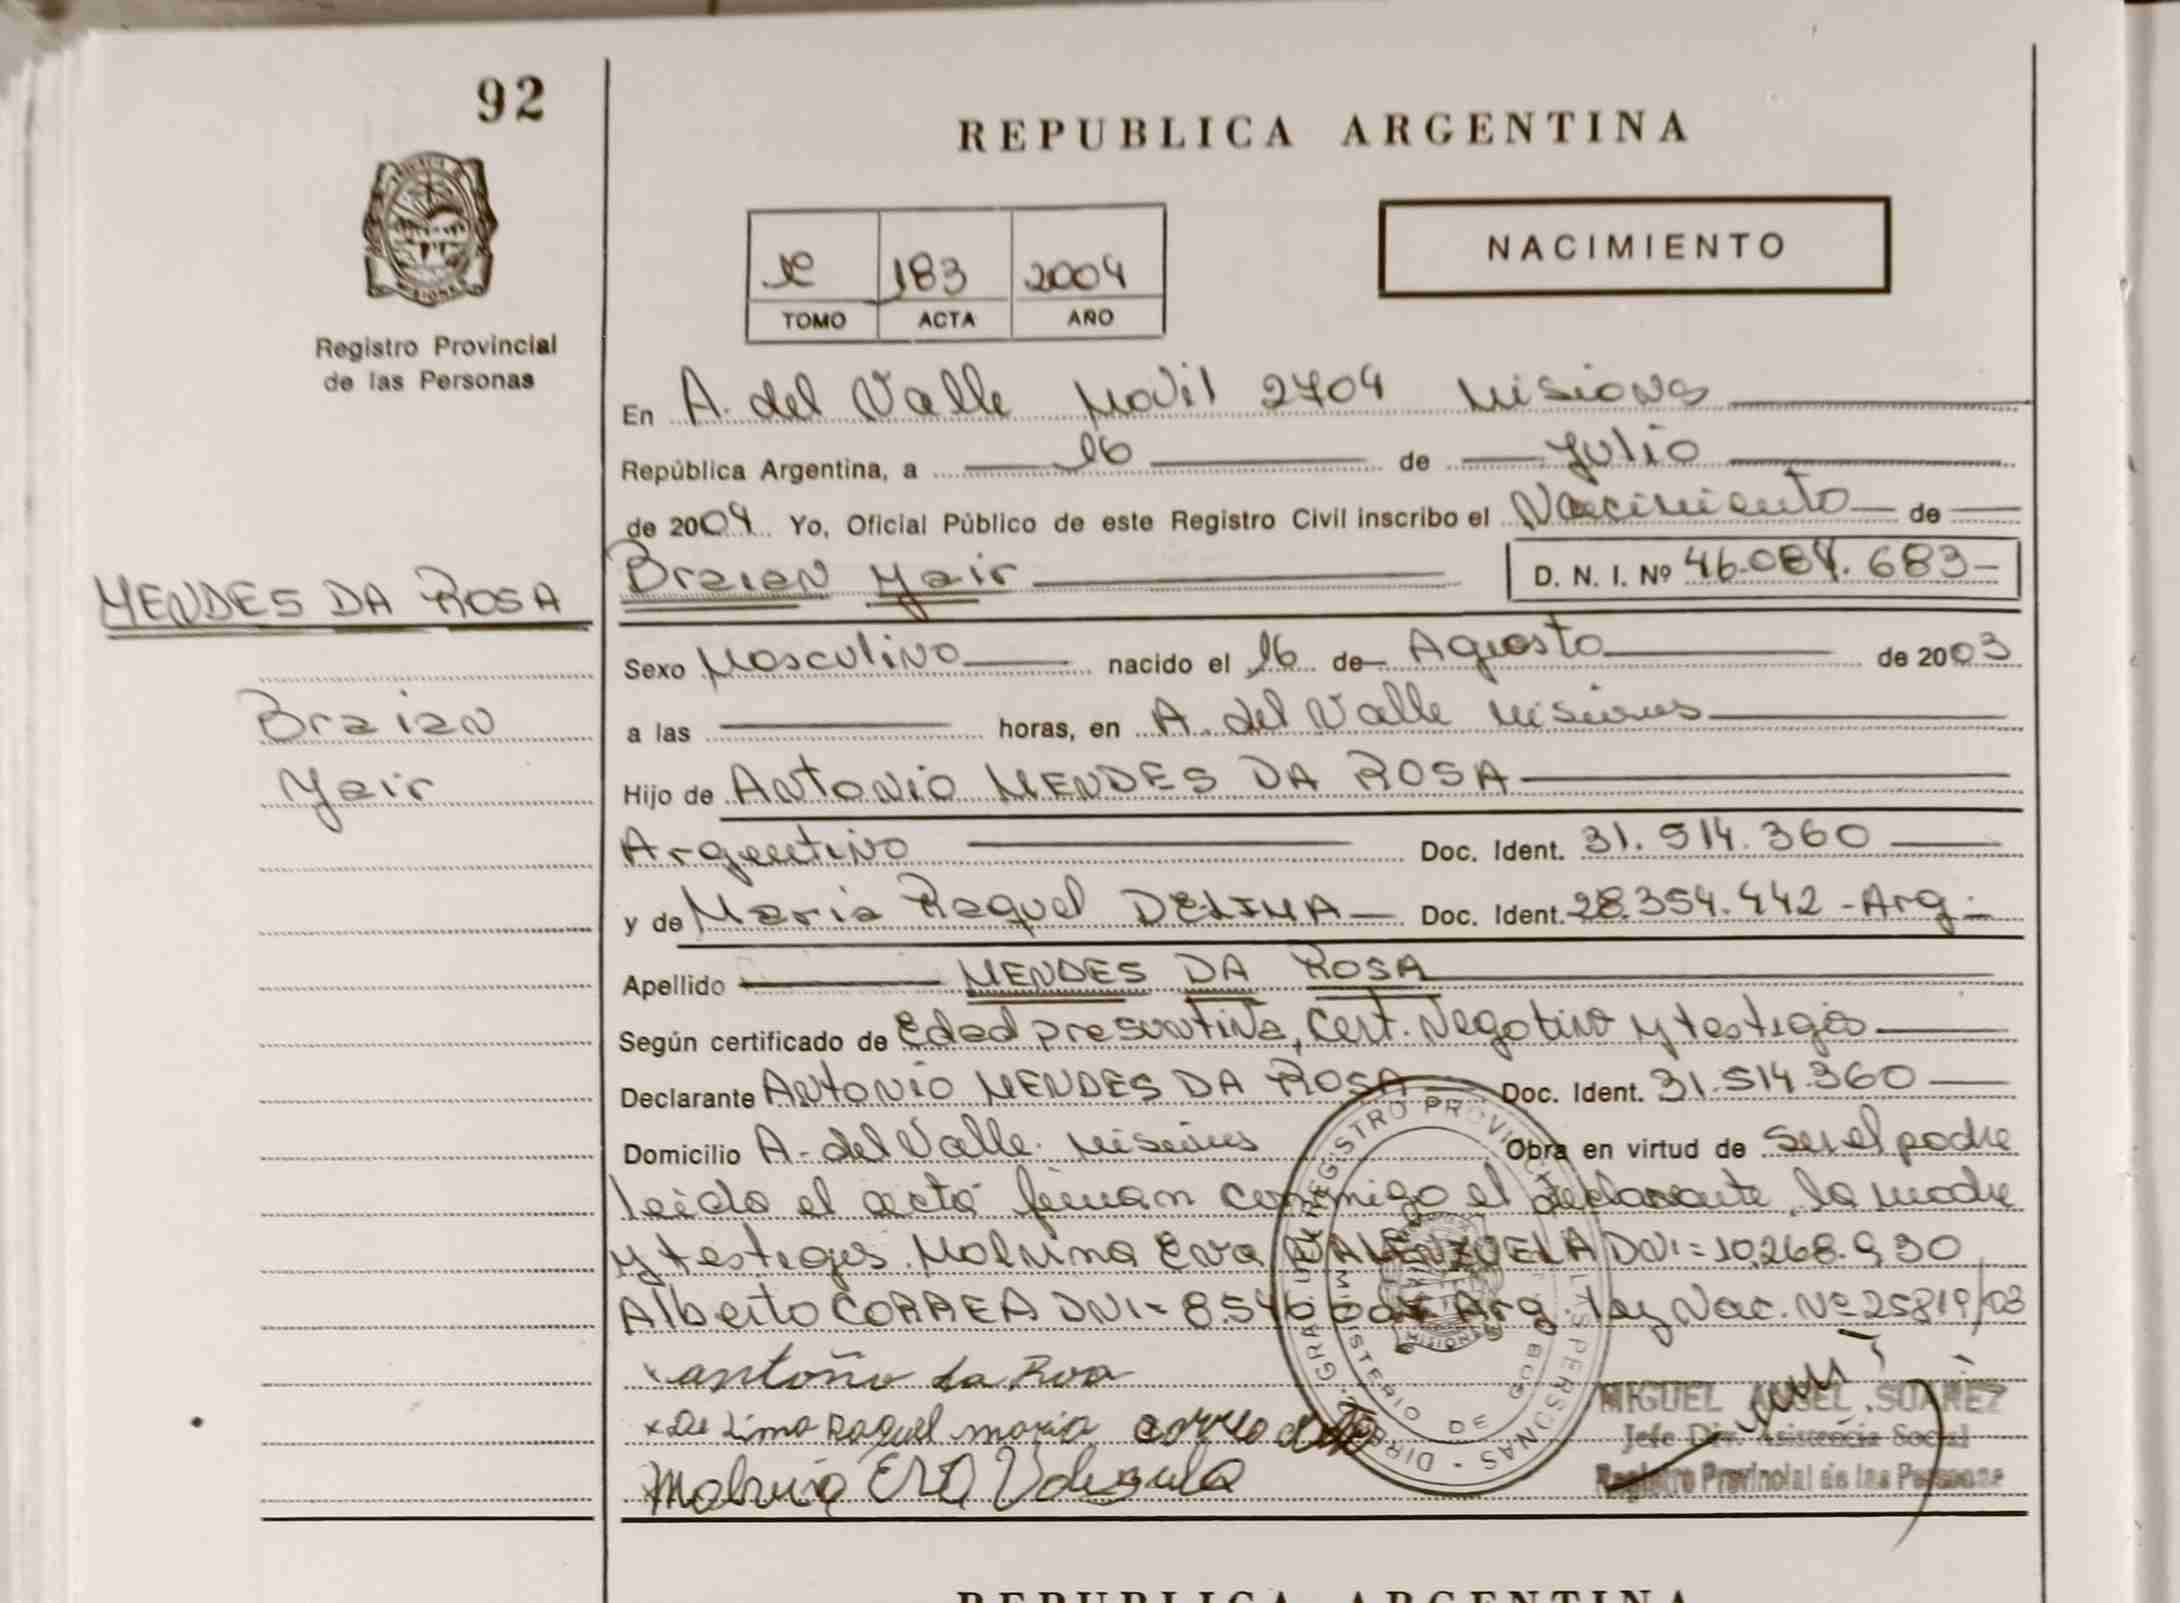 92
REPUBLICA ARGENTINA
NACIMIENTO
183 2004
TOMO ACTA AÑO
Registro Provincial
de las Personas
En A. del Valle Movil 2704 Misiones
República Argentina, a 16 de Julio
de 2004 Yo, Oficial Público de este Registro Civil inscribo el Nacimiento de
MENDES DA ROSA
Braian Yair D. N. I. Nº 46.084.683-
Sexo Masculino nacido el 16 de Agosto de 2003
Braian
a las horas, en A. del Valle Misiones
Yair
Hijo de Antonio MENDES DA ROSA
Argentino Doc. Ident. 31.514.360
y de Maria Raquel DELIMA Doc. Ident. 28.354.442 - Arg.-
Apellido MENDES DA ROSA
Según certificado de Edad presuntiva, Cert. Negativo y testigos
Declarante Antonio MENDES DA ROSA Doc. Ident. 31.514.360
Domicilio A. del Valle. Misiones Obra en virtud de ser el padre
Leido el acta firman conmigo el declarante, la madre
y testigos. Malvina Eva VALENZUELA DNI = 10,268.930
Alberto CORREA DNI = Arg. Ley Nac. Nº 25819/03
antoño da Roa
x De Lima Raquel maria
Malvina EVA
MIGUEL ANGEL SUAREZ
Jefe Dir. Asistencia Social
Registro Provincial de las Personas
REPUBLICA ARGENTINA